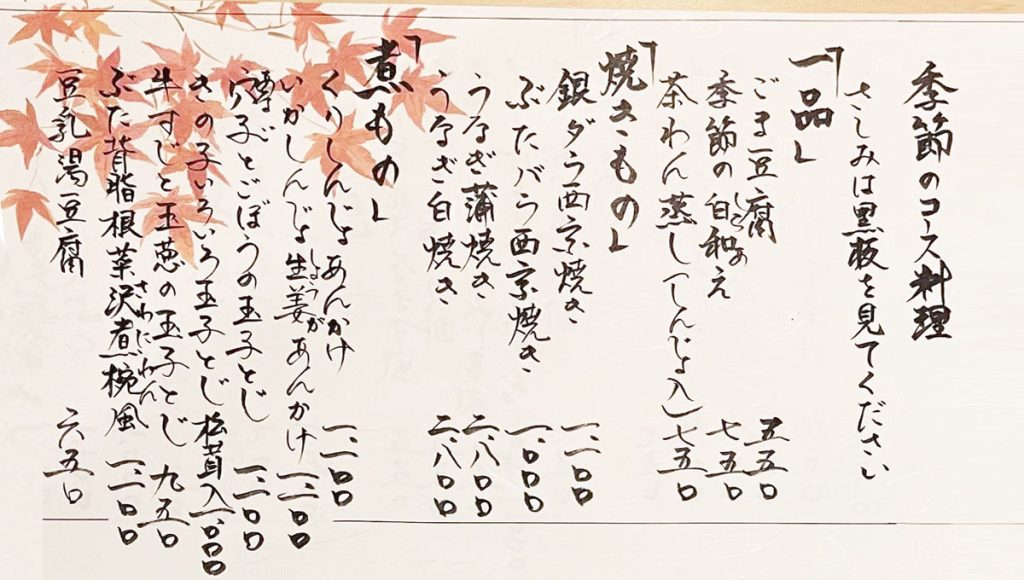 季節のコース料理
さしみは黒板を見てください
「一品」
ごま豆腐 五五〇
季節の白和え 七五〇
しろ あ
茶わん蒸し(しんじょ入) 七五〇
「焼きもの」
銀ダラ西京焼き 一、一〇〇
ぶたバラ西京焼き 一、〇〇〇
うなぎ蒲焼き 二、八〇〇
うなぎ白焼き 二、八〇〇
「煮もの」
くりしんじょ あんかけ 一、一〇〇
いかしんじょ生姜あんかけ 一、一〇〇
しょうが
穴子とごぼうの玉子とじ 一、一〇〇
きの子いろいろ玉子とじ 松茸入 一、〇〇〇
牛すじと玉葱の玉子とじ 九五〇
ぶた背脂根菜沢煮椀風 一、一〇〇
さわにわん
豆乳湯豆腐 六五〇